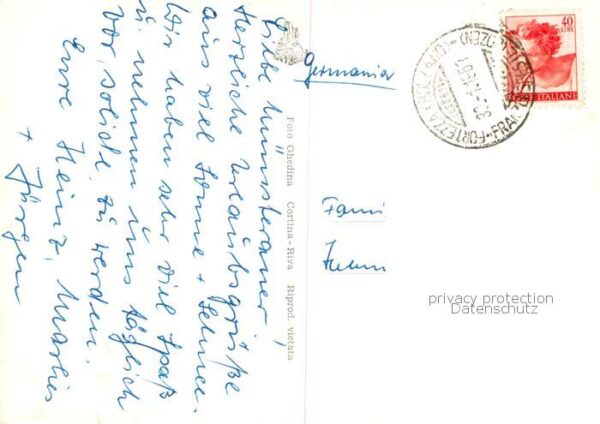 Liebe Münsteraner!
Herzliche Urlaubsgrüße
aus viel Sonne + Schnee.
Wir haben sehr viel Spaß
u. nehmen uns täglich
vor, solide zu werden.
Eure Heinz, Marlies
+ Jürgen
Foto Ghedina Cortina - Riva Riprod. vietata
Germania
40
LIRE
POSTE ITALIANE
FORTEZZA
Fami
privacy protection
Datenschutz